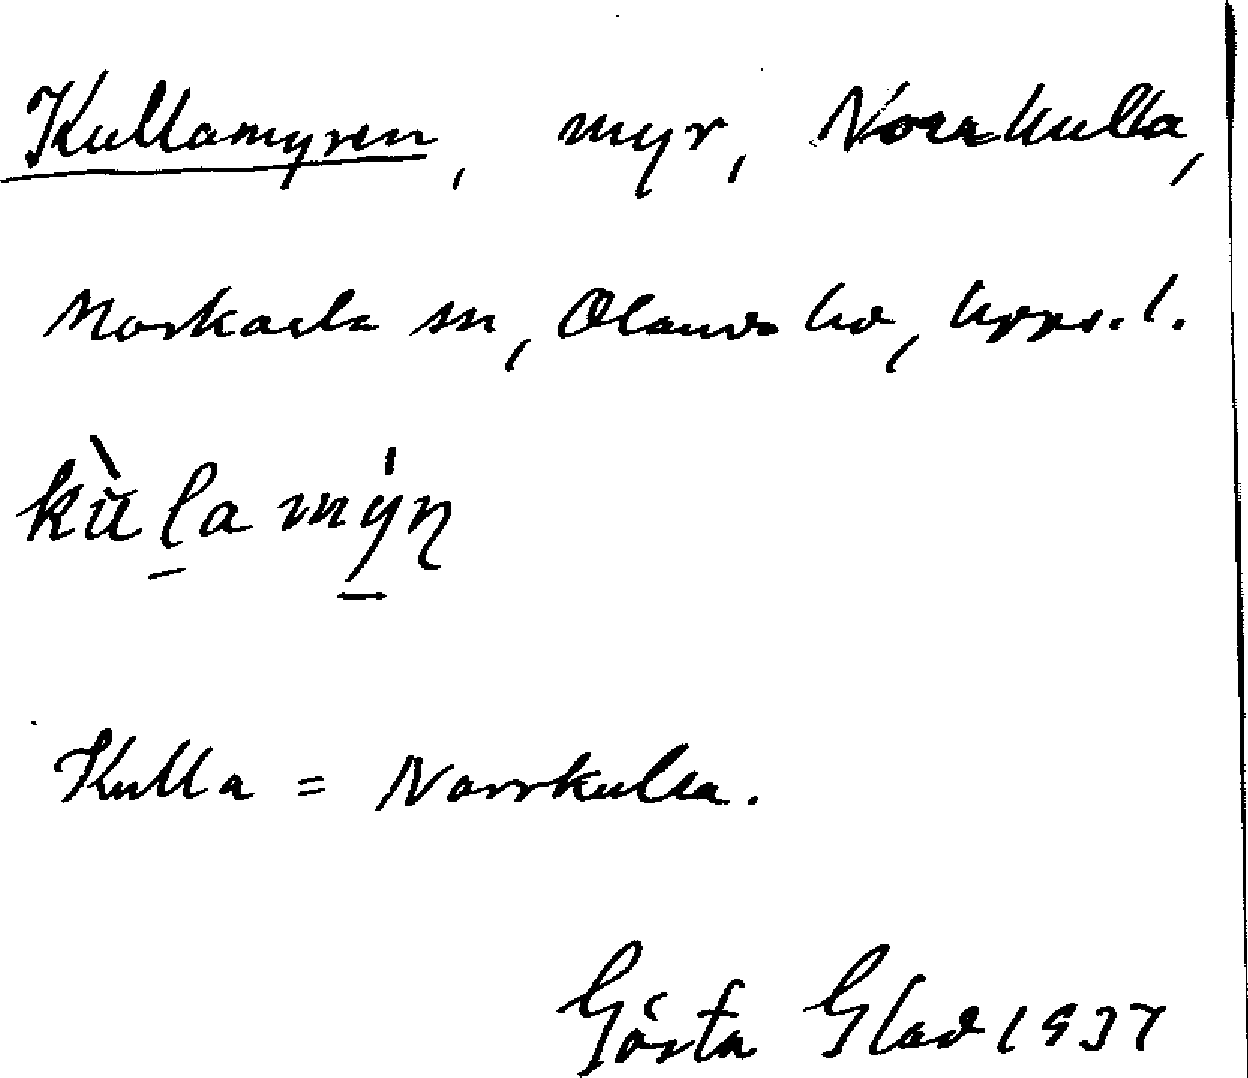 Kullamyren, myr, Norrkulla,
Morkarla sn, Olands hd, Upps. l.
kùlamýn
Kulla = Norrkulla.
Gösta Glad 1937